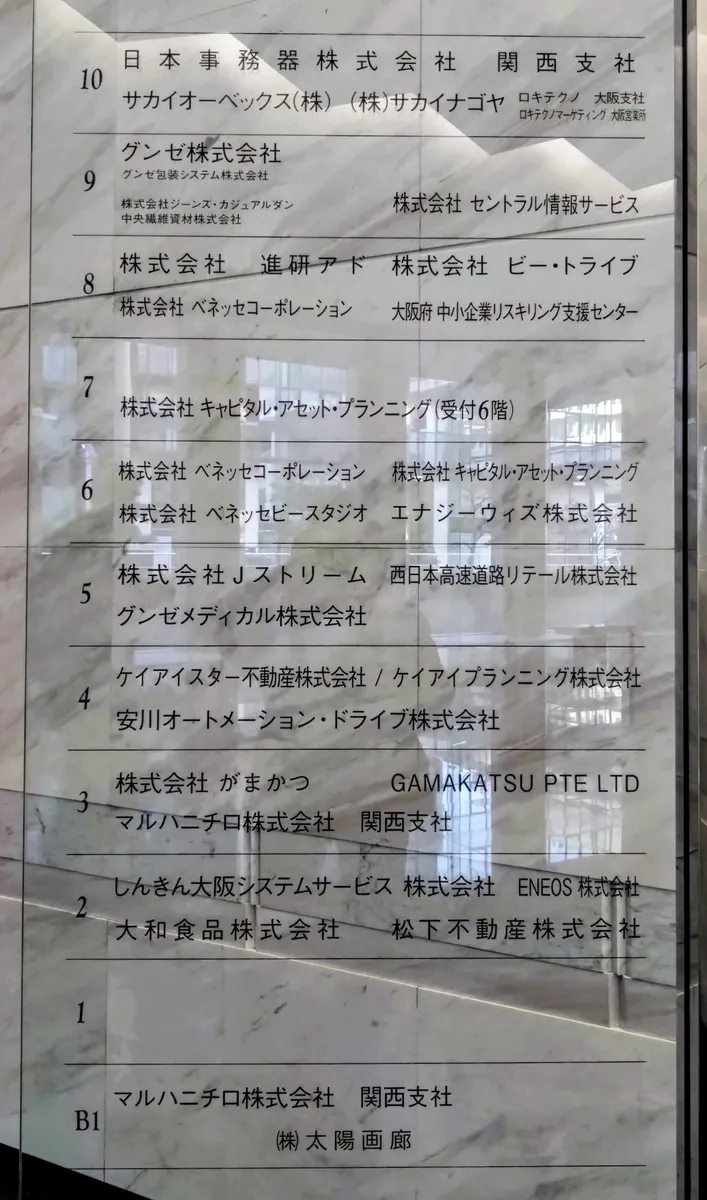 10
日本事務器株式会社 関西支社
サカイオーベックス(株) (株)サカイナゴヤ ロキテクノ 大阪支社
ロキテクノマーケティング 大阪営業所
9
グンゼ株式会社
グンゼ包装システム株式会社
株式会社ジーンズ・カジュアルダン
中央繊維資材株式会社
株式会社 セントラル情報サービス
8
株式会社 進研アド 株式会社 ビー・トライブ
株式会社 ベネッセコーポレーション 大阪府 中小企業リスキリング支援センター
7
株式会社 キャピタル・アセット・プランニング(受付6階)
6
株式会社 ベネッセコーポレーション 株式会社 キャピタル・アセット・プランニング
株式会社 ベネッセビースタジオ エナジーウィズ株式会社
5
株式会社Jストリーム 西日本高速道路リテール株式会社
グンゼメディカル株式会社
4
ケイアイスター不動産株式会社 / ケイアイプランニング株式会社
安川オートメーション・ドライブ株式会社
3
株式会社 がまかつ GAMAKATSU PTE LTD
マルハニチロ株式会社 関西支社
2
しんきん大阪システムサービス 株式会社 ENEOS 株式会社
大和食品株式会社 松下不動産株式会社
1
B1
マルハニチロ株式会社 関西支社
㈱ 太陽画廊